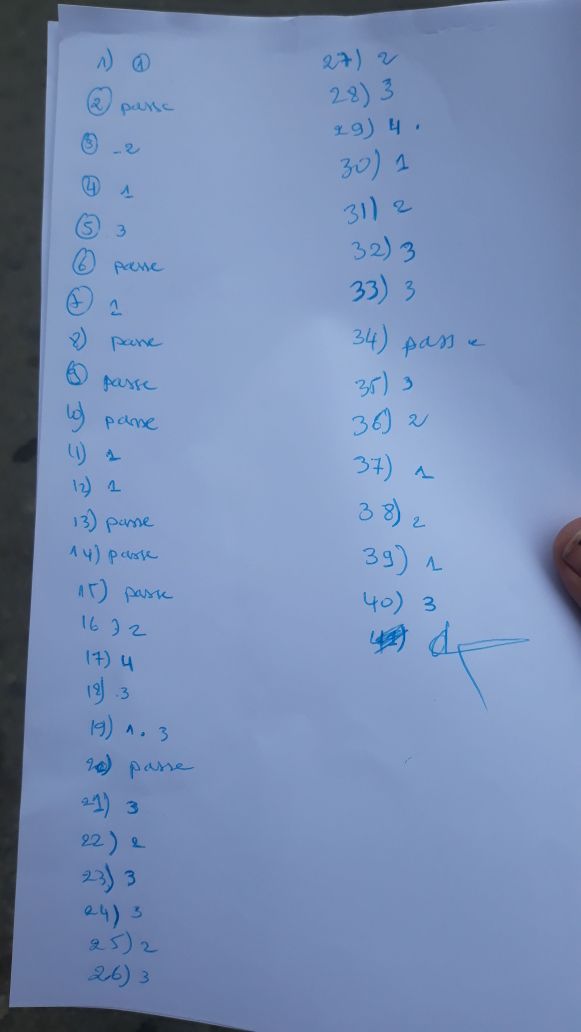 1) 1
2 passe
3 -2
4 1
5 3
6 passe
7 1
8) passe
9 passe
10) passe
11) 1
12) 1
13) passe
14) passe
15) passe
16) 2
17) 4
18) .3
19) 1. 3
20) passe
21) 3
22) 2
23) 3
24) 3
25) 2
26) 3
27) 2
28) 3
29) 4.
30) 1
31) 2
32) 3
33) 3
34) passe
35) 3
36) 2
37) 1
38) 2
39) 1
40) 3